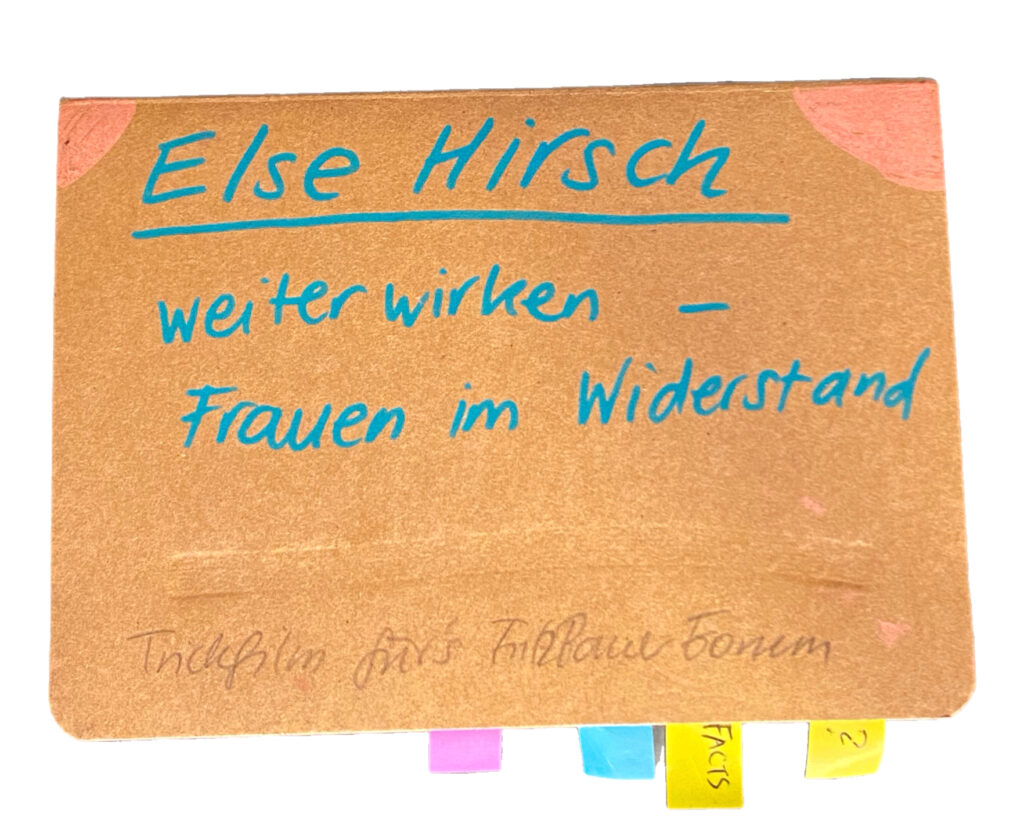 Else Hirsch
weiter wirken –
Frauen im Widerstand
Trickfilm für's Fritz Bauer Forum
FACTS
?